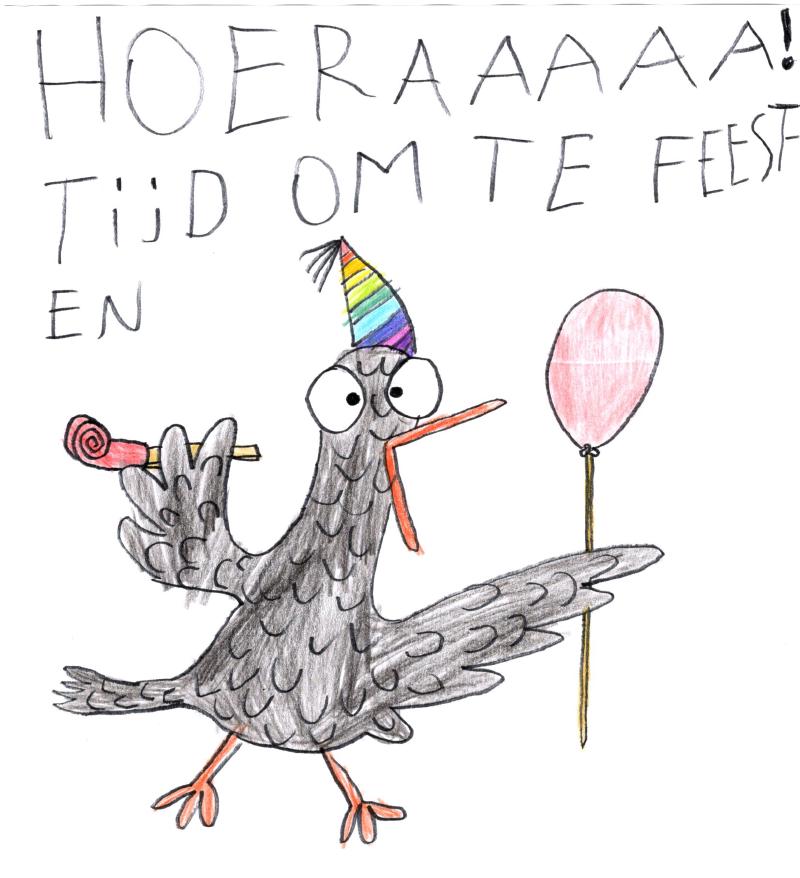 HOERAAAAA!
TijD OM TE FEEST
EN